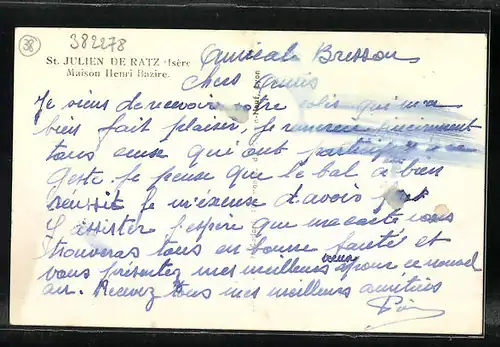 38
382278
St. JULIEN DE RATZ Isère
Maison Henri Bazire.
Amicale Bresson
Chers Amis
Je viens de recevoir votre colis qui m'a
bien fait plaisir, je remercie sincèrement
tous ceux qui ont participé a ce
geste. Je pense que le bal a bien
reussit je m'excuse d'avoir pas
y assister j'espère que ma carte vous
trouveras tous en bonne santé et
vous présentez mes meilleurs voeux pour ce nouvel
an. Recevez tous mes meilleurs amitiés